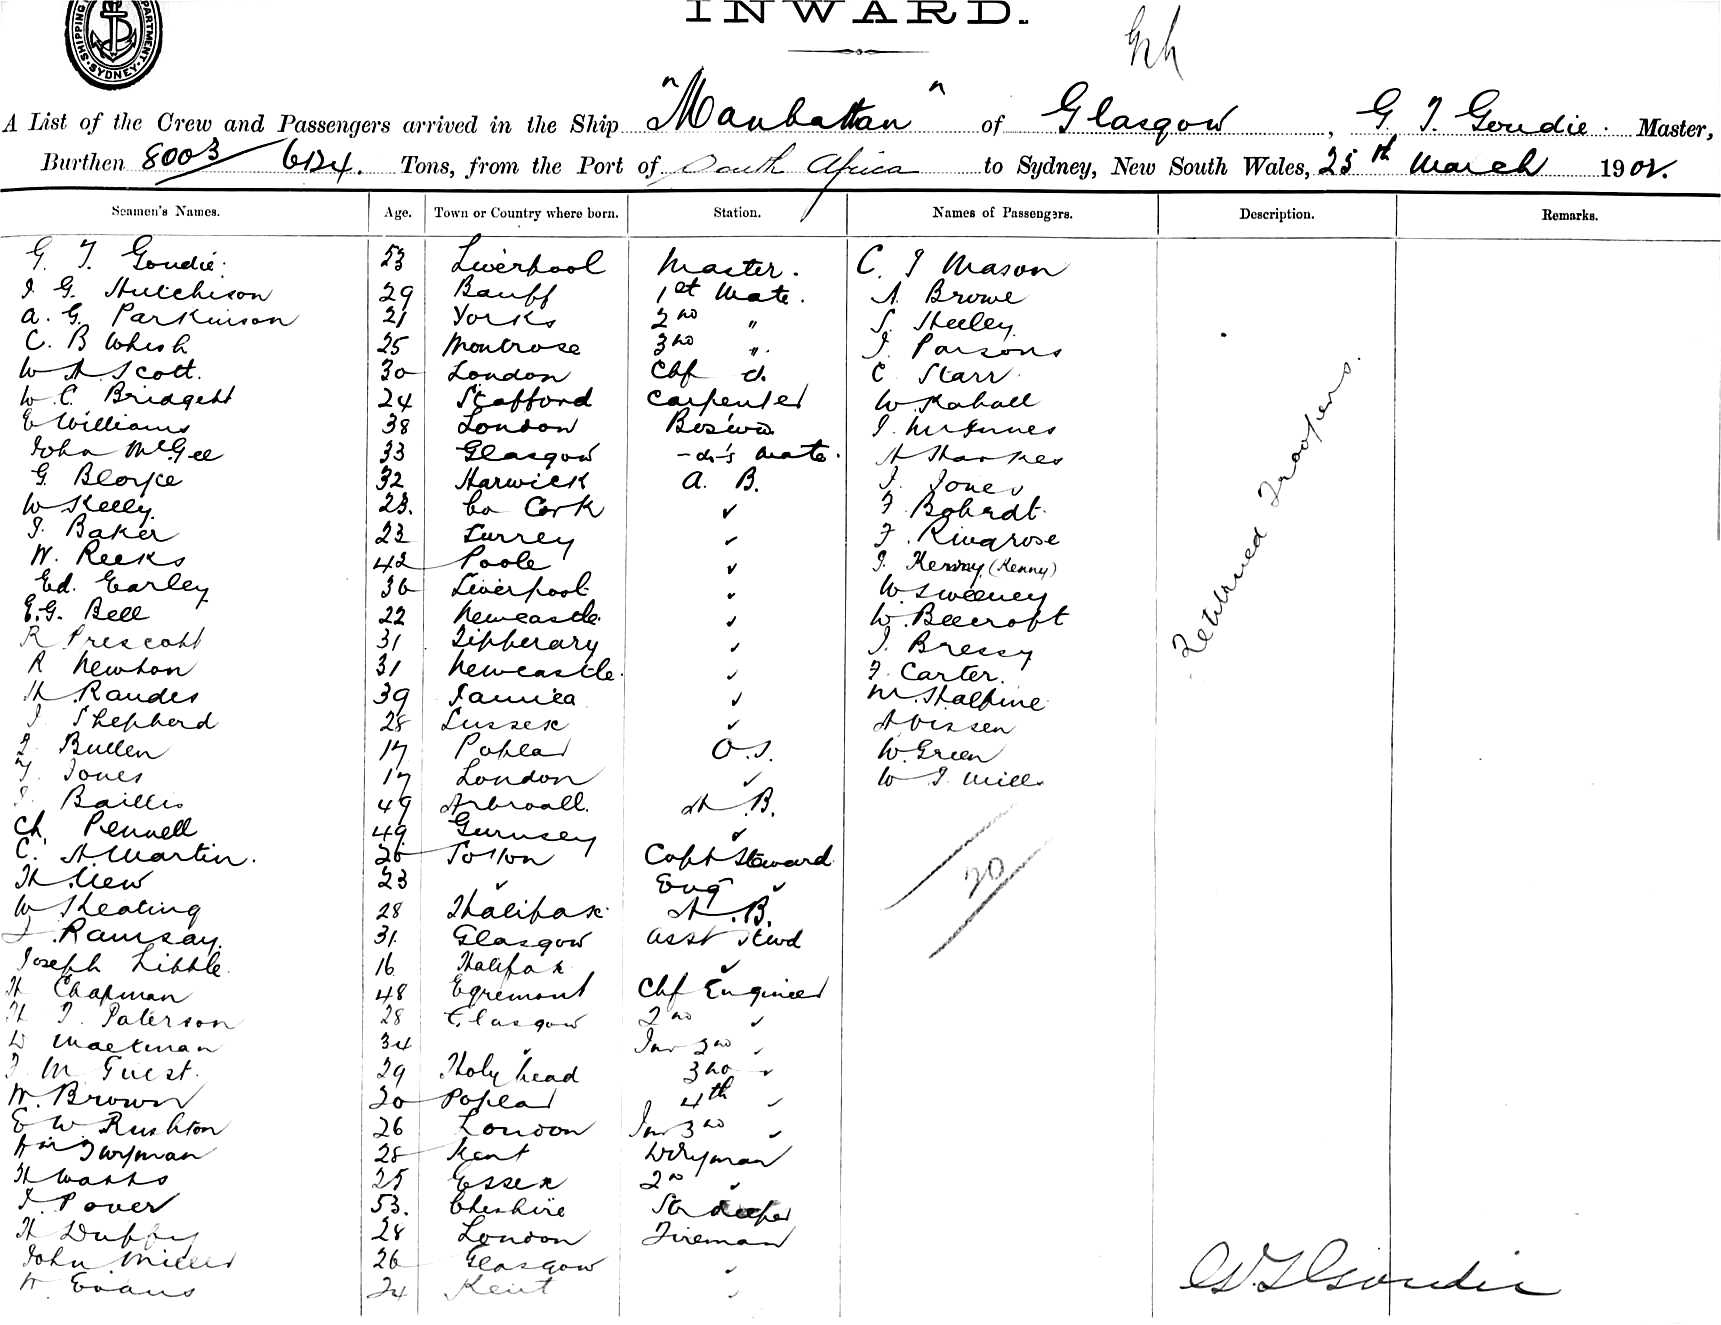 SHIPPING DEPARTMENT. SYDNEY.
INWARD.
A List of the Crew and Passengers arrived in the Ship "Manhattan" of Glasgow, G. T. Goudie. Master,
Burthen 8003 6124. Tons, from the Port of South Africa to Sydney, New South Wales, 25th March 1902.
Seamen's Names. Age. Town or Country where born. Station. Names of Passengers. Description. Remarks.
G. T. Goudie. 53 Liverpool Master. C. J Mason
J. G. Hutchison 29 Banff 1st Mate. A. Browe
A. G. Parkinson 21 Yorks 2nd " S. Steeley
C. B Whish 25 Montrose 3rd " J. Parsons
W A Scott. 30 London Chf O. C Starr
W. C. Bridgett 24 Stafford Carpenter W. Kahall
E Williams 38 London Bos'un J. McInnes
John McGee 33 Glasgow -do's Mate. H Sharpes
G. 32 Harwick A. B. J. Jones
W Kelly. 23. Co Cork ✓ F. Bohrdt.
J. Baker 23 Surrey ✓ F. Ringrose
W. Reeks 42 Poole ✓ J. Kenny (Kenny)
Ed. Earley 36 Liverpool ✓ W Sweeney
E. G. Bell 22 Newcastle. ✓ W. Beecroft
R Prescott 31 Tipperary ✓ J. Bressy
R Newton 31 Newcastle. ✓ F. Carter.
H Randes 39 Jamica ✓ M. Halpine
J. Shepherd 28 Sussex ✓ A Vissen
J. Bullen 17 Poplar O.S. W. Green
T. Jones 17 London ✓ W J. Mills
J. Baillis 49 Arbroall. A. B.
Ch. Pennell 49 Gurnsey ✓
C. A. Martin. 26 Capt Steward
H. New 23 ✓ Eng ✓
W Keating 28 Halifax A. B.
J. Ramsay. 31. Glasgow Asst Stewd
Joseph Little. 16 Halifax ✓
H Chapman 48 Egremont Chf Engineer
H T. Paterson 28 Glasgow 2nd ✓
W 34 ✓ Jnr 2nd ✓
J M Guest. 29 Holyhead 3rd ✓
W. Brown 20 Poplar 4th ✓
E W Rushton 26 London Jnr 3rd ✓
Wm Twyman 28 Kent
H Watts 25 Essex 2nd ✓
J. Pover 53. Cheshire
H Duffy 28 London Fireman
John Miller 26 Glasgow ✓
W. Evans 24 Kent ✓
Returned Troopers.
20
G T Goudie